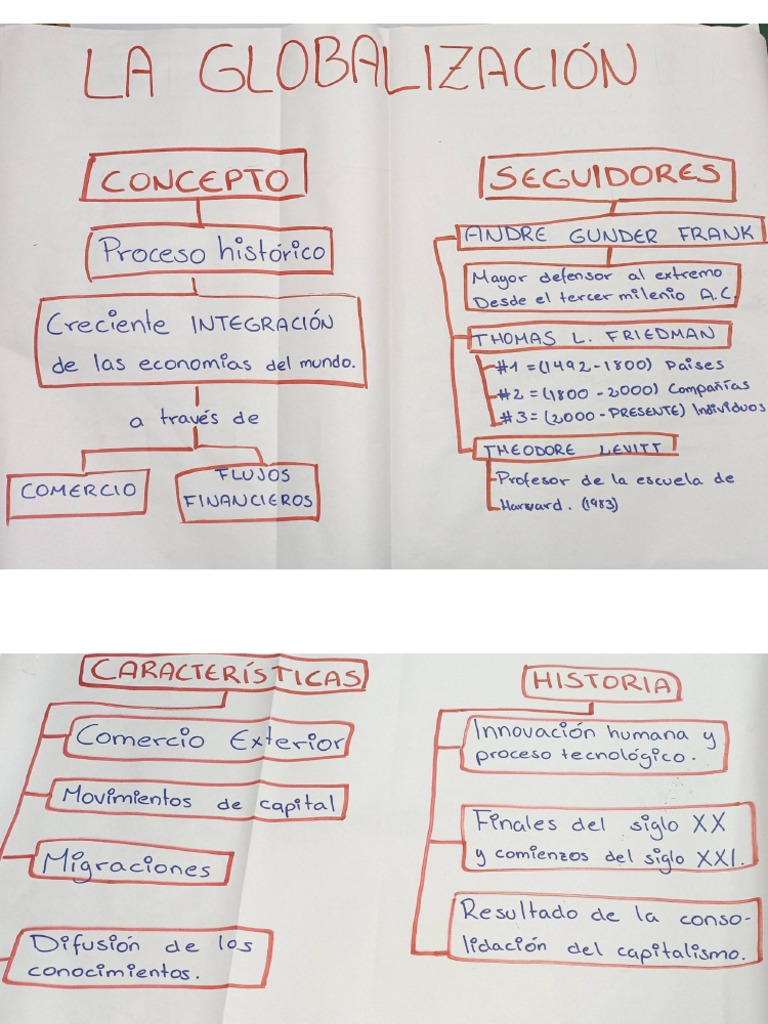 LA GLOBALIZACIÓN
CONCEPTO
Proceso histórico
Creciente INTEGRACIÓN
de las economías del mundo.
a través de
COMERCIO
FLUJOS
FINANCIEROS
SEGUIDORES
ANDRE GUNDER FRANK
Mayor defensor al extremo
Desde el tercer milenio A.C.
THOMAS L. FRIEDMAN
#1 = (1492 - 1800) Paises
#2 = (1800 - 2000) Compañías
#3 = (2000 - PRESENTE) Individuos
THEODORE LEVITT
Profesor de la escuela de
Harvard. (1983)
CARACTERÍSTICAS
Comercio Exterior
Movimientos de capital
Migraciones
Difusión de los
conocimientos.
HISTORIA
Innovación humana y
proceso tecnológico.
Finales del siglo XX
y comienzos del siglo XXI.
Resultado de la conso-
lidación del capitalismo.